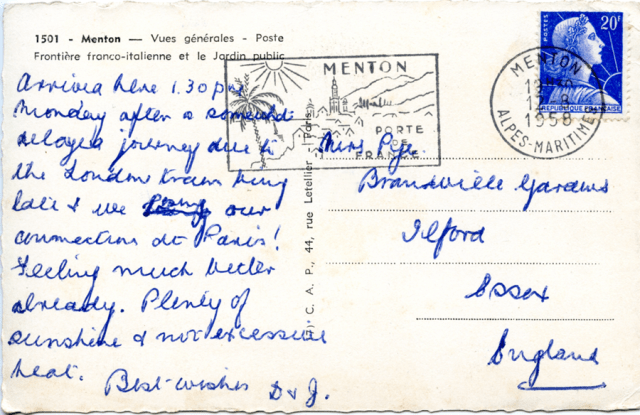 1501 - Menton — Vues générales - Poste
Frontière franco-italienne et le Jardin public
Arrived here 1.30 pm
Monday after a somewhat
delayed journey due to
the London train being
late & we our
connection at Paris!
Feeling much better
already. Plenty of
sunshine & not excessive
heat. Best wishes
D & J.
C. A. P., 44, rue Letellier - Paris
MENTON
PORTE
DE
FRANCE
MENTON
1958
ALPES-MARITIMES
POSTES
20F
REPUBLIQUE FRANÇAISE
Mrs Pye.
Gardens
Ilford
Essex
England